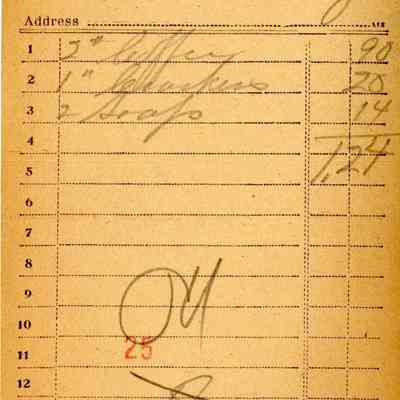 Address
1 2# Coffee 90
2 1# Crackers 20
3 2 Soaps 14
4
5 1,24
6
7
8
9
10
11 25
12